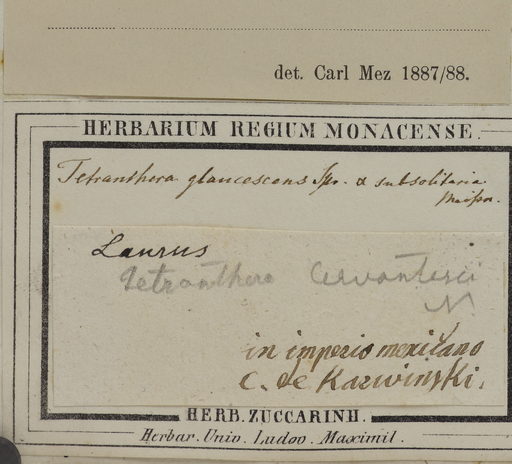 det. Carl Mez 1887/88.
HERBARIUM REGIUM MONACENSE.
Tetranthera glaucescens Spr. α subsolitaria
Meissn.
Laurus
Tetranthera Cervantesii
N
in imperio mexicano
C. de Karwinski.
HERB. ZUCCARINII.
Herbar. Univ. Ludov. Maximil.